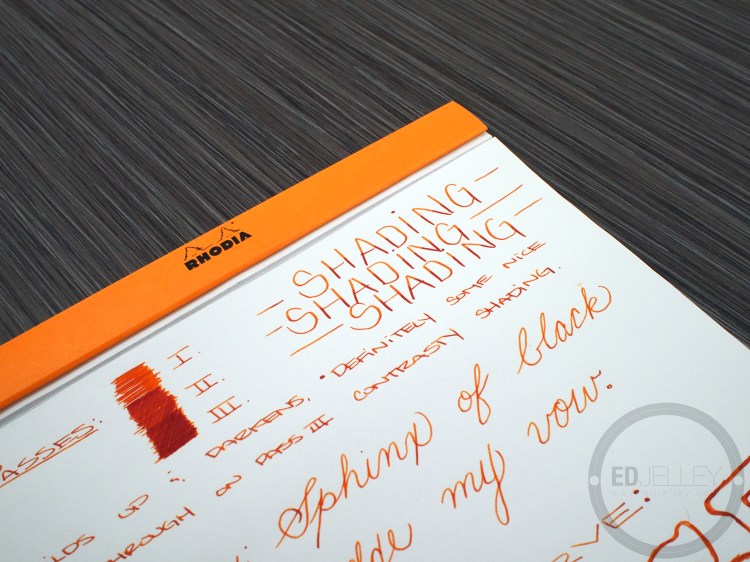 RHODIA
- SHADING -
- SHADING -
- SHADING -
• DEFINITELY SOME NICE
CONTRASTY SHADING.
PASSES:
I.
II.
III.
UP ; DARKENS,
THROUGH ON PASS III
Sphinx of black
my vow.
ED JELLEY